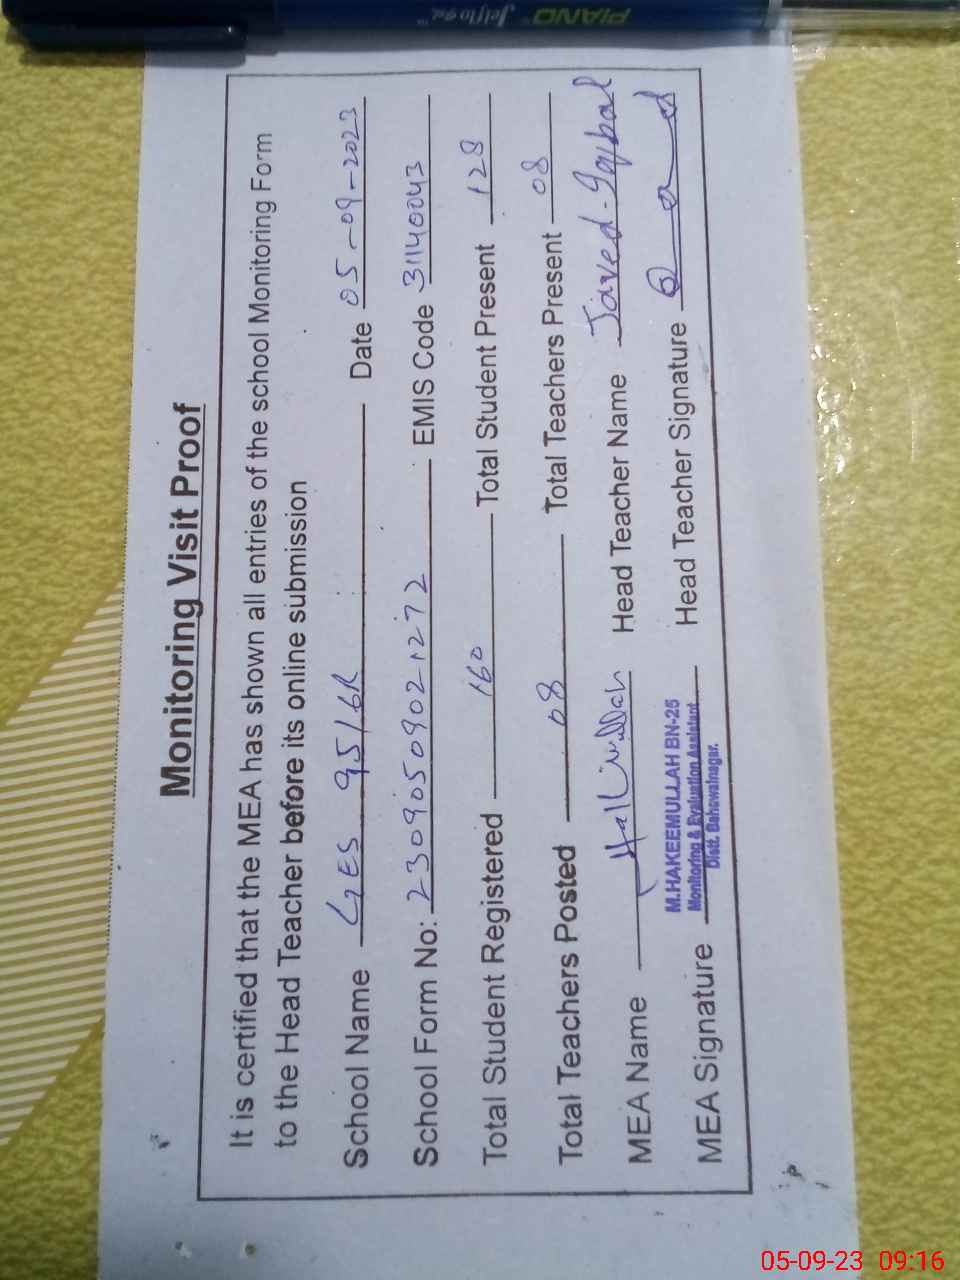 PIANO Jelflo gel™
Monitoring Visit Proof
It is certified that the MEA has shown all entries of the school Monitoring Form
to the Head Teacher before its online submission
School Name GES 95/6R Date 05-09-2023
School Form No: 23090509021272 EMIS Code 31140043
Total Student Registered 160 Total Student Present 128
Total Teachers Posted 08 Total Teachers Present 08
MEA Name Head Teacher Name Javed Iqbal
M.HAKEEMULLAH BN-25
Monitoring & Evaluation Assistant
Distt. Bahawalnagar.
MEA Signature Head Teacher Signature
05-09-23 09:16